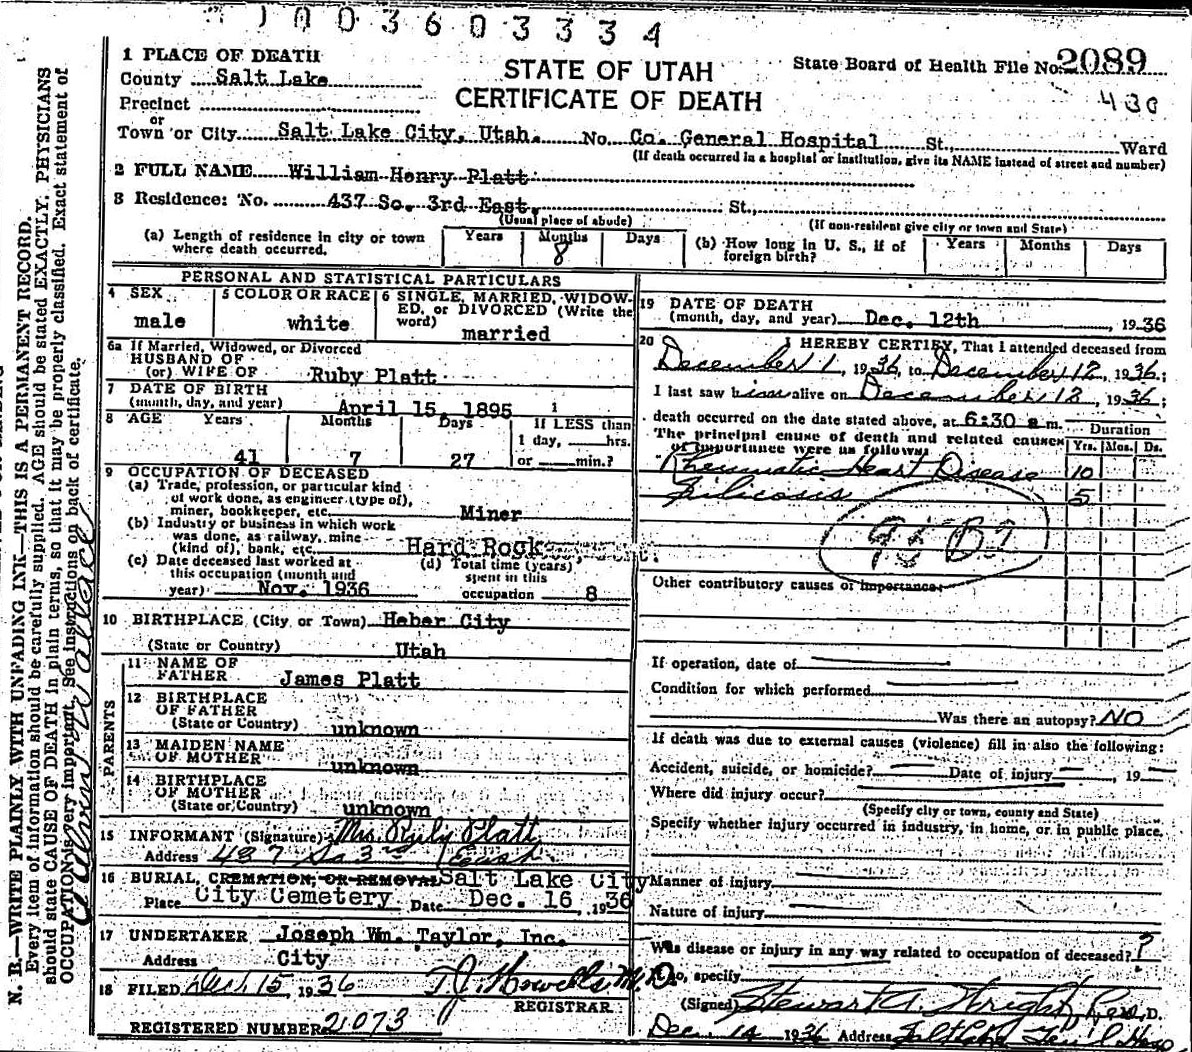 1003603334
1 PLACE OF DEATH
County Salt Lake
Precinct
or
Town or City Salt Lake City, Utah. No. Co. General Hospital St., Ward
(If death occurred in a hospital or institution, give its NAME instead of street and number)
STATE OF UTAH
CERTIFICATE OF DEATH
State Board of Health File No. 2089
430
2 FULL NAME William Henry Platt
3 Residence: No. 437 So. 3rd East. St.,
(Usual place of abode) (If non-resident give city or town and State)
(a) Length of residence in city or town where death occurred. Years Months 8 Days
(b) How long in U. S., if of foreign birth? Years Months Days
PERSONAL AND STATISTICAL PARTICULARS
4 SEX male
5 COLOR OR RACE white
6 SINGLE, MARRIED, WIDOWED, or DIVORCED (Write the word) married
6a If Married, Widowed, or Divorced
HUSBAND OF
(or) WIFE OF Ruby Platt
7 DATE OF BIRTH
(month, day, and year) April 15, 1895
8 AGE Years 41 Months 7 Days 27
If LESS than 1 day, hrs. or min.?
9 OCCUPATION OF DECEASED
(a) Trade, profession, or particular kind
of work done, as engineer (type of),
miner, bookkeeper, etc. Miner
(b) Industry or business in which work
was done, as railway, mine
(kind of), bank, etc. Hard Rock
(c) Date deceased last worked at
this occupation (month and
year) Nov. 1936
(d) Total time (years)
spent in this
occupation 8
10 BIRTHPLACE (City or Town) Heber City
(State or Country) Utah
PARENTS
11 NAME OF
FATHER James Platt
12 BIRTHPLACE
OF FATHER
(State or Country) unknown
13 MAIDEN NAME
OF MOTHER unknown
14 BIRTHPLACE
OF MOTHER
(State or Country) unknown
15 INFORMANT (Signature) Mrs. Ruby Platt
Address 437 So 3rd East
16 BURIAL, CREMATION, OR REMOVAL Salt Lake City
Place City Cemetery Date Dec. 16, 1936
17 UNDERTAKER Joseph Wm. Taylor, Inc.
Address City
18 FILED Dec 15, 1936 T. J. Howells M.D.
REGISTRAR
REGISTERED NUMBER 21073
19 DATE OF DEATH
(month, day, and year) Dec. 12th, 1936
20 I HEREBY CERTIFY, That I attended deceased from
December 1, 1936, to December 12, 1936;
I last saw him alive on December 12, 1936;
death occurred on the date stated above, at 6:30 a m.
The principal cause of death and related causes
of importance were as follows:
Duration
Yrs. Mos. Ds.
Rheumatic Heart Disease 10
Silicosis 5
Other contributory causes of importance:
If operation, date of
Condition for which performed
Was there an autopsy? NO
If death was due to external causes (violence) fill in also the following:
Accident, suicide, or homicide? Date of injury , 19
Where did injury occur?
(Specify city or town, county and State)
Specify whether injury occurred in industry, in home, or in public place.
Manner of injury
Nature of injury
Was disease or injury in any way related to occupation of deceased? ?
If so, specify
(Signed) Stewart A. Wright, D.
Dec 14 1936 Address Salt Lake Gen'l Hosp
N. B.—WRITE PLAINLY WITH UNFADING INK—THIS IS A PERMANENT RECORD.
Every item of information should be carefully supplied. AGE should be stated EXACTLY. PHYSICIANS
should state CAUSE OF DEATH in plain terms, so that it may be properly classified. Exact statement of
OCCUPATION is very important. See instructions on back of certificate.